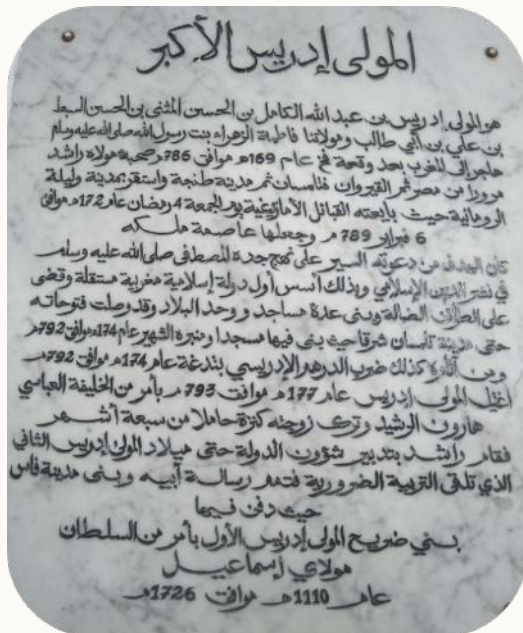 المولى إدريس الأكبر
هو المولى إدريس بن عبد الله الكامل بن الحسن المثنى بن الحسن السبط
بن علي بن أبي طالب ومولاتنا فاطمة الزهراء بنت رسول الله صلى الله عليه وسلم
هاجر إلى المغرب بعد وقعة فخ عام 169هـ موافق 786م وصحبة مولاه راشد
مرورا من مصر ثم القيروان فتلمسان ثم مدينة طنجة واستقر بمدينة وليلة
الرومانية حيث بايعته القبائل الأمازيغية يوم الجمعة 4 رمضان عام 172هـ موافق
6 فبراير 789م وجعلها عاصمة ملكه
كان الهدف من دعوته السير على نهج جده المصطفى صلى الله عليه وسلم
في نشر الدين الإسلامي وبذلك أسس أول دولة إسلامية مغربية مستقلة وقضى
على الطوائف الضالة وبنى عدة مساجد ووحد البلاد وقد وصلت فتوحاته
حتى مدينة تلمسان شرقا حيث بنى فيها مسجدا ومنبره الشهير عام 174هـ موافق 792م
ومن آثاره كذلك ضرب الدرهم الإدريسي بتدغة عام 174هـ موافق 792م
اغتيل المولى إدريس عام 177هـ موافق 793م بأمر من الخليفة العباسي
هارون الرشيد وترك زوجته كنزة حاملا من سبعة أشهر
فقام راشد بتدبير شؤون الدولة حتى ميلاد المولى إدريس الثاني
الذي تلقى التربية الضرورية فتمم رسالة أبيه وبنى مدينة فاس
حيث دفن فيها
بني ضريح المولى إدريس الأول بأمر من السلطان
مولاي إسماعيل
عام 1110هـ موافق 1726م